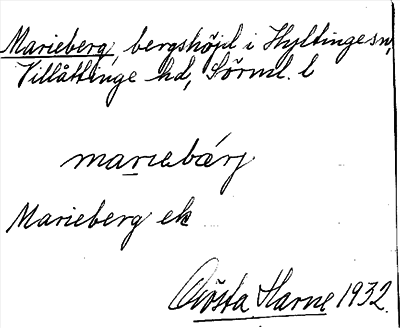 Marieberg, bergshöjd i Hyltinge sn,
Villåttinge hd, Sörml. l
mariebárj
Marieberg ek
Gösta Harne 1932.